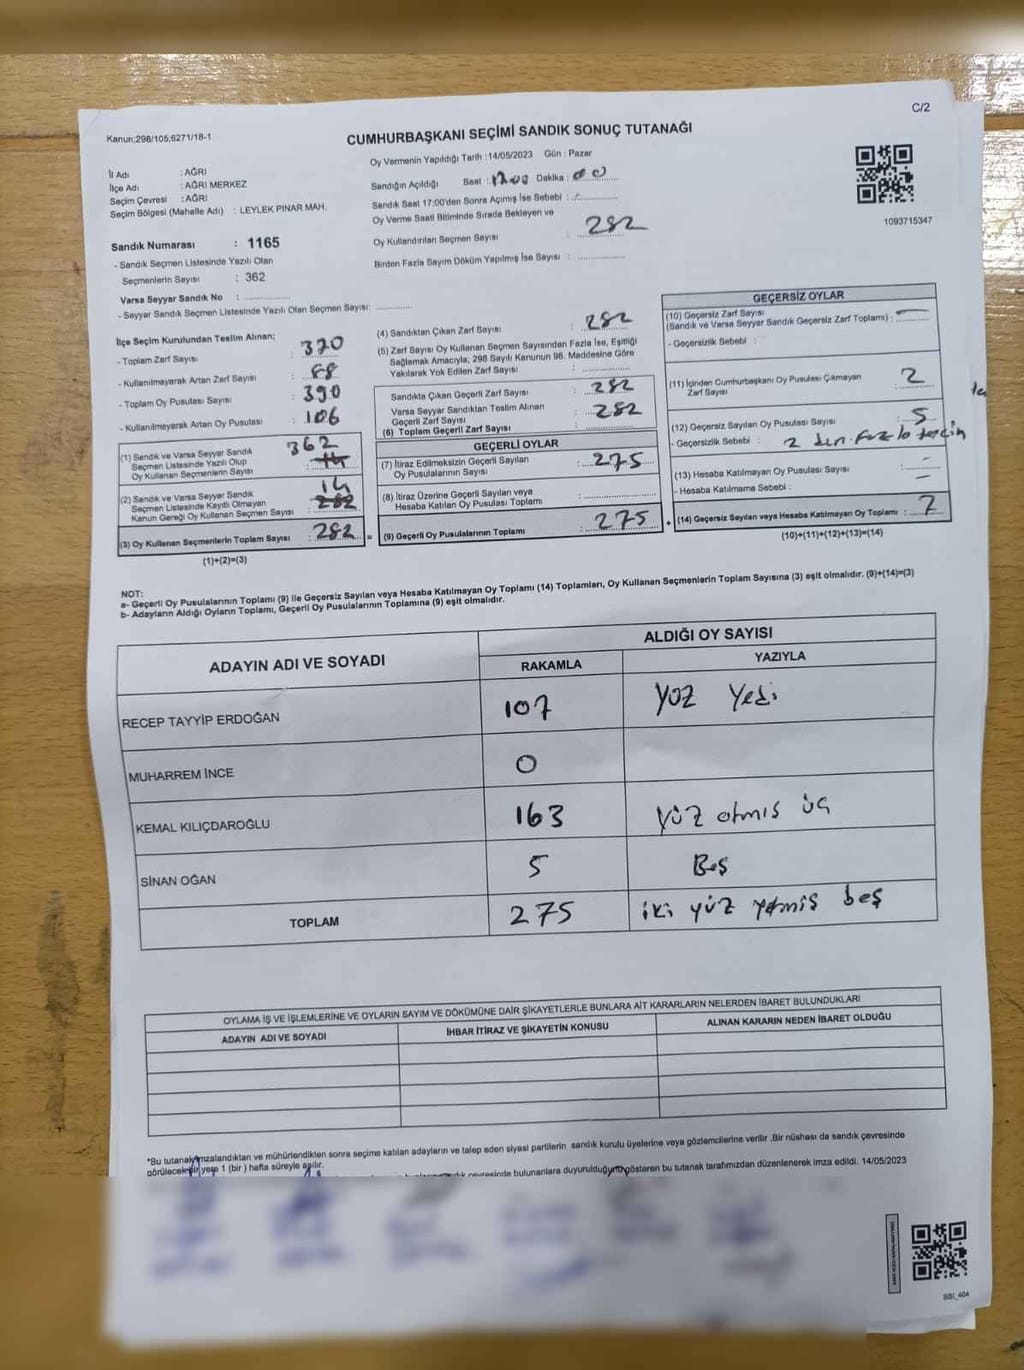 C/2
Kanun;298/105;6271/18-1
CUMHURBAŞKANI SEÇİMİ SANDIK SONUÇ TUTANAĞI
Oy Vermenin Yapıldığı Tarih :14/05/2023 Gün : Pazar
İl Adı : AĞRI
İlçe Adı : AĞRI MERKEZ
Seçim Çevresi : AĞRI
Seçim Bölgesi (Mahalle Adı) : LEYLEK PINAR MAH.
Sandığın Açıldığı Saat : Dakika : 00
Sandık Saat 17:00'den Sonra Açımış İse Sebebi :
Oy Verme Saati Bitiminde Sırada Bekleyen ve
Oy Kullandırılan Seçmen Sayısı : 282
Birden Fazla Sayım Döküm Yapılmış İse Sayısı :
1093715347
Sandık Numarası : 1165
- Sandık Seçmen Listesinde Yazılı Olan
Seçmenlerin Sayısı : 362
Varsa Seyyar Sandık No :
- Seyyar Sandık Seçmen Listesinde Yazılı Olan Seçmen Sayısı:
İlçe Seçim Kurulundan Teslim Alınan;
- Toplam Zarf Sayısı : 370
- Kullanılmayarak Artan Zarf Sayısı : 88
- Toplam Oy Pusulası Sayısı : 390
- Kullanılmayarak Artan Oy Pusulası : 106
(1) Sandık ve Varsa Seyyar Sandık 362
Seçmen Listesinde Yazılı Olup
Oy Kullanan Seçmenlerin Sayısı :
(2) Sandık ve Varsa Seyyar Sandık 14
Seçmen Listesinde Kayıtlı Olmayan
Kanun Gereği Oy Kullanan Seçmen Sayısı : 282
(3) Oy Kullanan Seçmenlerin Toplam Sayısı : 282 =
(1)+(2)=(3)
(4) Sandıktan Çıkan Zarf Sayısı : 282
(5) Zarf Sayısı Oy Kullanan Seçmen Sayısından Fazla İse, Eşitliği
Sağlamak Amacıyla; 298 Sayılı Kanunun 98. Maddesine Göre
Yakılarak Yok Edilen Zarf Sayısı :
Sandıkta Çıkan Geçerli Zarf Sayısı : 282
Varsa Seyyar Sandıktan Teslim Alınan
Geçerli Zarf Sayısı : 282
(6) Toplam Geçerli Zarf Sayısı :
GEÇERLİ OYLAR
(7) İtiraz Edilmeksizin Geçerli Sayılan
Oy Pusulalarının Sayısı : 275
(8) İtiraz Üzerine Geçerli Sayılan veya
Hesaba Katılan Oy Pusulası Toplamı :
(9) Geçerli Oy Pusulalarının Toplamı : 275 +
GEÇERSİZ OYLAR
(10) Geçersiz Zarf Sayısı
(Sandık ve Varsa Seyyar Sandık Geçersiz Zarf Toplamı) : -
- Geçersizlik Sebebi :
(11) İçinden Cumhurbaşkanı Oy Pusulası Çıkmayan
Zarf Sayısı : 2
(12) Geçersiz Sayılan Oy Pusulası Sayısı : 5
- Geçersizlik Sebebi : 2 den fazla tercih
(13) Hesaba Katılmayan Oy Pusulası Sayısı : -
- Hesaba Katılmama Sebebi : -
(14) Geçersiz Sayılan veya Hesaba Katılmayan Oy Toplamı : 7
(10)+(11)+(12)+(13)=(14)
NOT:
a- Geçerli Oy Pusulalarının Toplamı (9) ile Geçersiz Sayılan veya Hesaba Katılmayan Oy Toplamı (14) Toplamları, Oy Kullanan Seçmenlerin Toplam Sayısına (3) eşit olmalıdır. (9)+(14)=(3)
b- Adayların Aldığı Oyların Toplamı, Geçerli Oy Pusulalarının Toplamına (9) eşit olmalıdır.
ADAYIN ADI VE SOYADI ALDIĞI OY SAYISI
RAKAMLA YAZIYLA
RECEP TAYYİP ERDOĞAN 107 Yüz Yedi
MUHARREM İNCE 0
KEMAL KILIÇDAROĞLU 163 Yüz atmış üç
SİNAN OĞAN 5 Beş
TOPLAM 275 iki yüz yetmiş beş
OYLAMA İŞ VE İŞLEMLERİNE VE OYLARIN SAYIM VE DÖKÜMÜNE DAİR ŞİKAYETLERLE BUNLARA AİT KARARLARIN NELERDEN İBARET BULUNDUKLARI
ADAYIN ADI VE SOYADI İHBAR İTİRAZ VE ŞİKAYETİN KONUSU ALINAN KARARIN NEDEN İBARET OLDUĞU
*Bu tutanak imzalandıktan ve mühürlendikten sonra seçime katılan adayların ve talep eden siyasi partilerin sandık kurulu üyelerine veya gözlemcilerine verilir .Bir nüshası da sandık çevresinde
görülecek bir yere 1 (bir ) hafta süreyle asılır.
çevresinde bulunanlara duyurulduğunu gösteren bu tutanak tarafımızdan düzenlenerek imza edildi. 14/05/2023
SSI_404